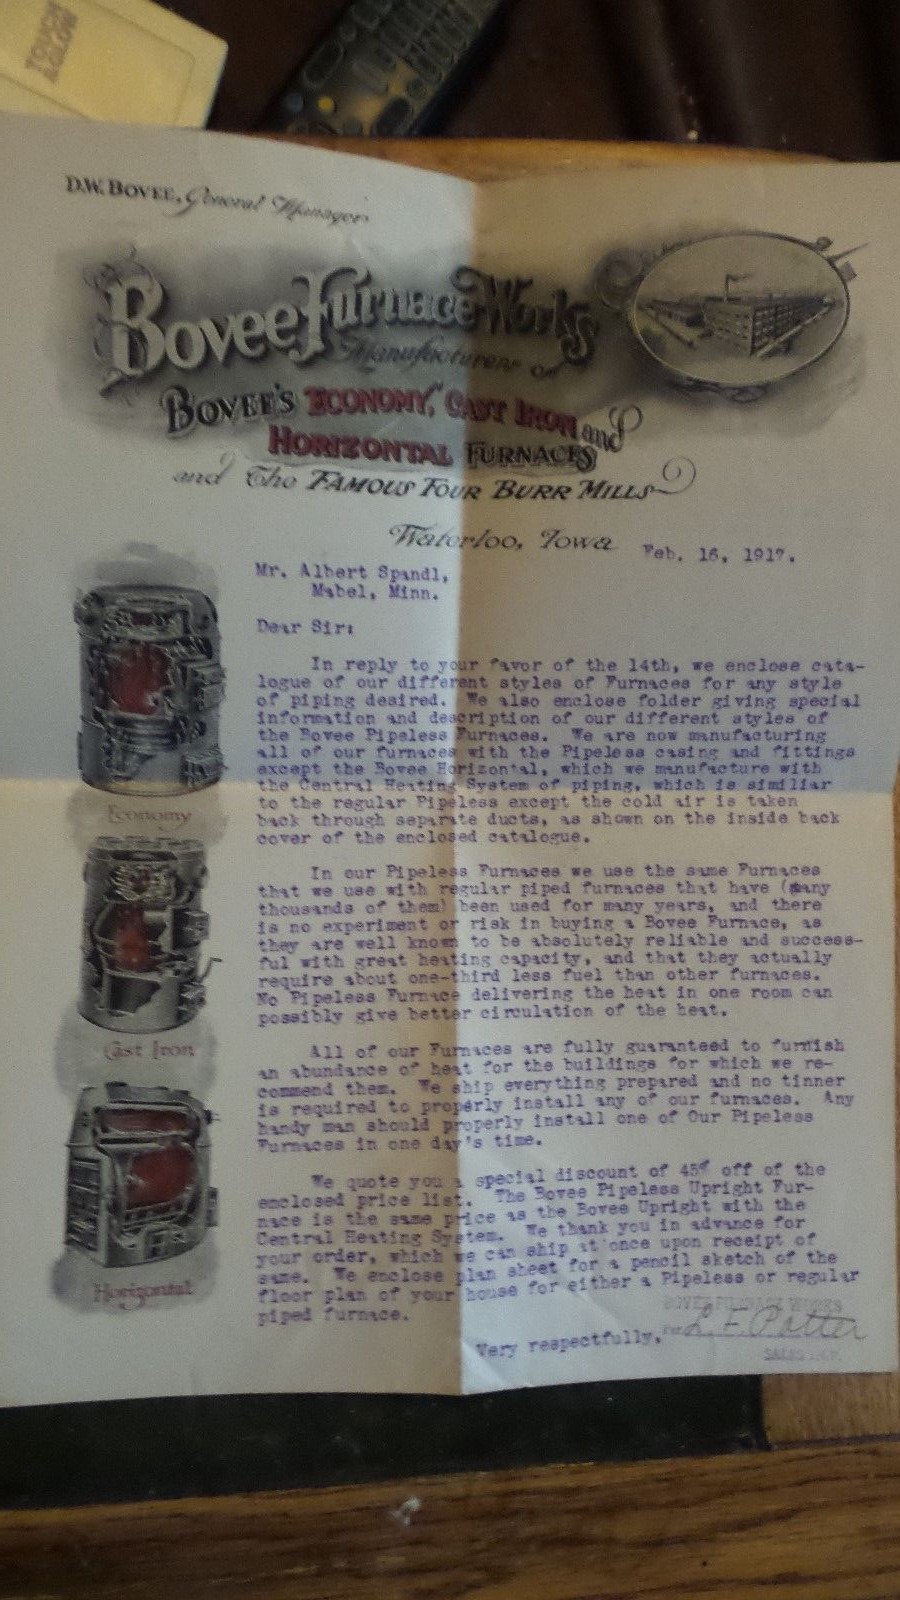 TOUCH
&GLOW
D.W. BOVEE, General Manager
Bovee Furnace Works
Manufacturers of
BOVEE'S "ECONOMY," CAST IRON and
HORIZONTAL FURNACES
and The FAMOUS FOUR BURR MILLS
Waterloo, Iowa Feb. 16, 1917.
Mr. Albert Spandl,
Mabel, Minn.
Dear Sir:
In reply to your favor of the 14th, we enclose cata-
logue of our different styles of Furnaces for any style
of piping desired. We also enclose folder giving special
information and description of our different styles of
the Bovee Pipeless Furnaces. We are now manufacturing
all of our furnaces with the Pipeless casing and fittings
except the Bovee Horizontal, which we manufacture with
the Central Heating System of piping, which is similiar
to the regular Pipeless except the cold air is taken
back through separate ducts, as shown on the inside back
cover of the enclosed catalogue.
In our Pipeless Furnaces we use the same Furnaces
that we use with regular piped furnaces that have (many
thousands of them) been used for many years, and there
is no experiment or risk in buying a Bovee Furnace, as
they are well known to be absolutely reliable and success-
ful with great heating capacity, and that they actually
require about one-third less fuel than other furnaces.
No Pipeless Furnace delivering the heat in one room can
possibly give better circulation of the heat.
All of our Furnaces are fully guaranteed to furnish
an abundance of heat for the buildings for which we re-
commend them. We ship everything prepared and no tinner
is required to properly install any of our furnaces. Any
handy man should properly install one of Our Pipeless
Furnaces in one day's time.
We quote you a special discount of 45% off of the
enclosed price list. The Bovee Pipeless Upright Fur-
nace is the same price as the Bovee Upright with the
Central Heating System. We thank you in advance for
your order, which we can ship at once upon receipt of
same. We enclose plan sheet for a pencil sketch of the
floor plan of your house for either a Pipeless or regular
piped furnace.
BOVEE FURNACE WORKS
Very respectfully, Per L. F. Potter
SALES DEP.
Economy
Cast Iron
Horizontal